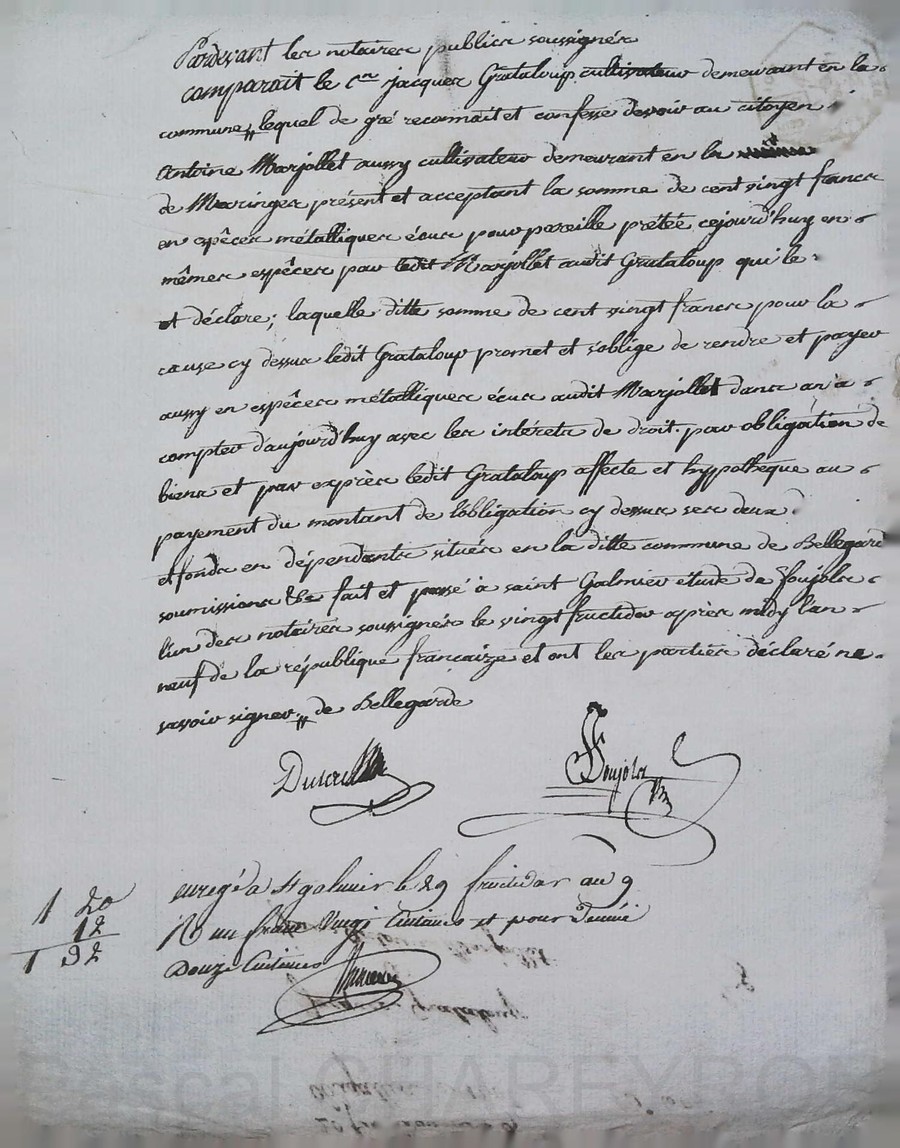 Pardevant les notaires publics soussignés
comparait le cen jacques Grataloup cultivateur demeurant en la
commune, lequel de gré reconnait et confesse devoir au citoyen
Antoine Marjollet aussy cultivateur demeurant en la
de Maringes présent et acceptant la somme de cent vingt francs
en espêces métalliques écus pour pareille prétée cejourd'huy en
mêmes espêces par ledit Marjollet audit Grataloup qui le
et déclare; laquelle ditte somme de cent vingt francs pour la
cause cy dessus ledit Grataloup promet et s'oblige de rendre et payer
aussy en espêces métalliques écus audit Marjollet dans an a
compter d'aujourd'huy avec les intérets de droit. par obligation de
biens et par exprès ledit Grataloup affecte et hypothéque au
payement du montant de l'obligation cy dessus ses
et fonds en dépendants situés en la ditte commune de Bellegarde
soumissions &c fait et passé à saint Galmier étude de Foujols
l'un des notaires soussignés le vingt fructidor après midy l'an
neuf de la république francaize et ont les parties déclaré ne
savoir signer, de Bellegarde
Foujols
enregé a St galmier le 29 fructidor an 9
R un franc vingt Centimes et pour
Douze Centimes
1 20
12
1 32
Pascal CHAREYRON